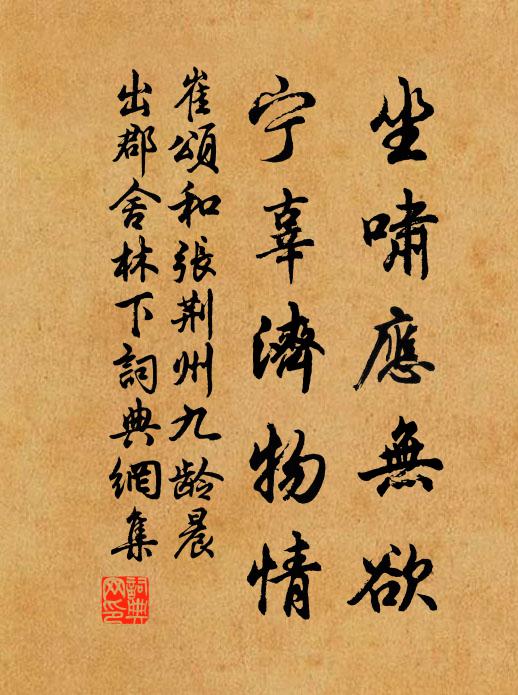 坐嘯應無欲
宁辜濟物情
崔頌和張荆州九龄晨
出郡舍林下詞典網集
詞典网印